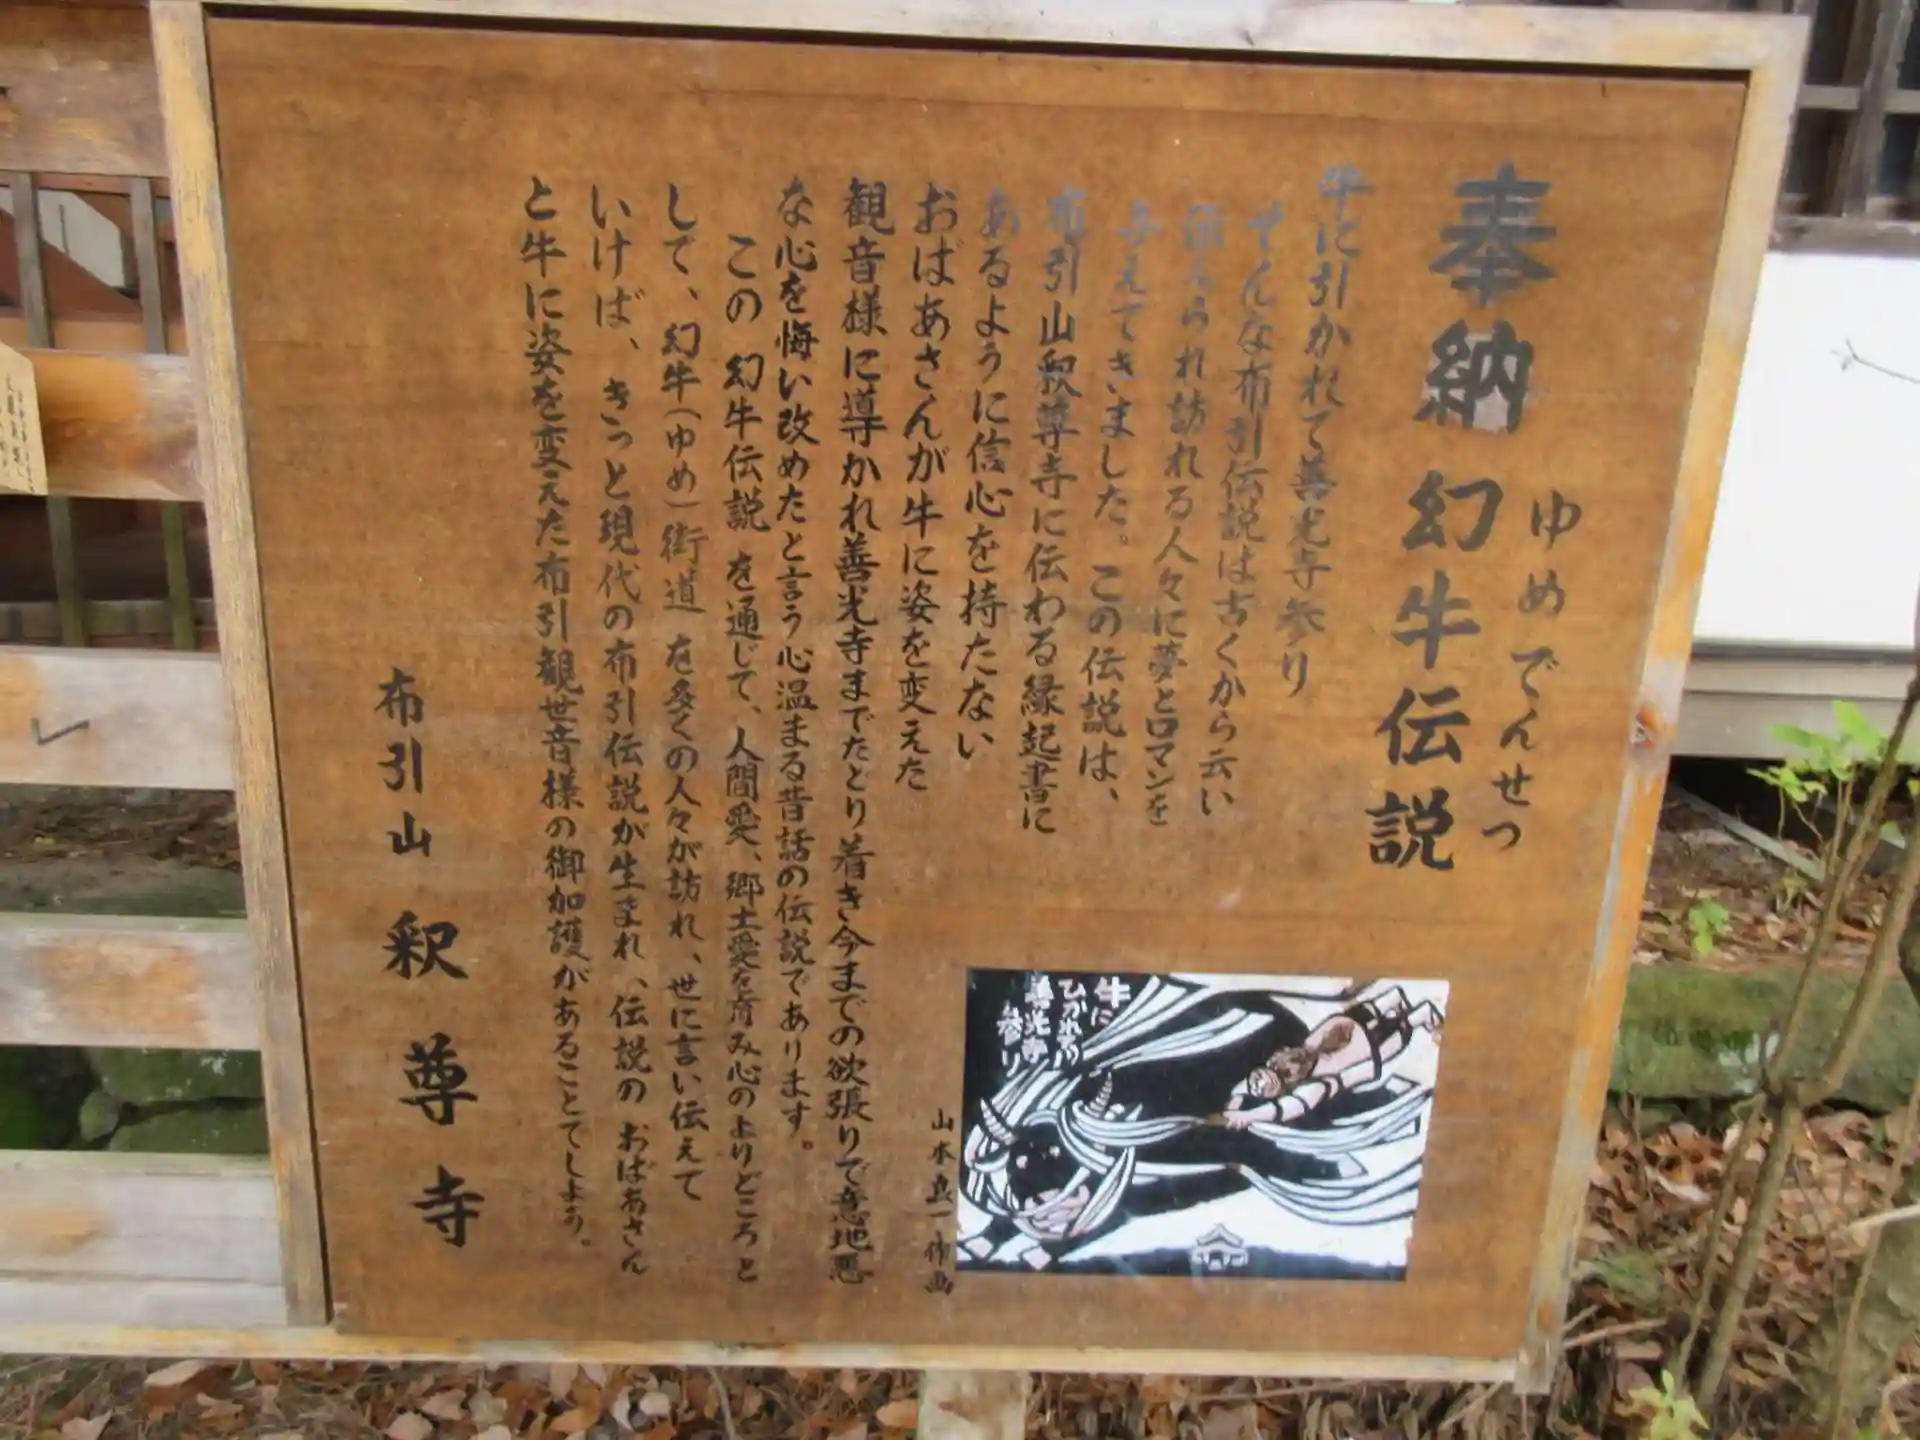 奉納 幻牛伝説
ゆめでんせつ
牛に引かれて善光寺参り
そんな布引伝説は古くから云い
伝えられ訪れる人々に夢とロマンを
与えてきました。この伝説は、
布引山釈尊寺に伝わる縁起書に
あるように信心を持たない
おばあさんが牛に姿を変えた
観音様に導かれ善光寺までたどり着き今までの欲張りで意地悪
な心を悔い改めたと言う心温まる昔話の伝説であります。
この 幻牛伝説 を通じて、人間愛、郷土愛を育み心のよりどころと
して、幻牛(ゆめ)街道 を多くの人々が訪れ、世に言い伝えて
いけば、きっと現代の布引伝説が生まれ、伝説の おばあさん
と牛に姿を変えた布引観世音様の御加護があることでしょう。
布引山 釈尊寺
牛に
ひかれて
善光寺
参り
山本良一作画